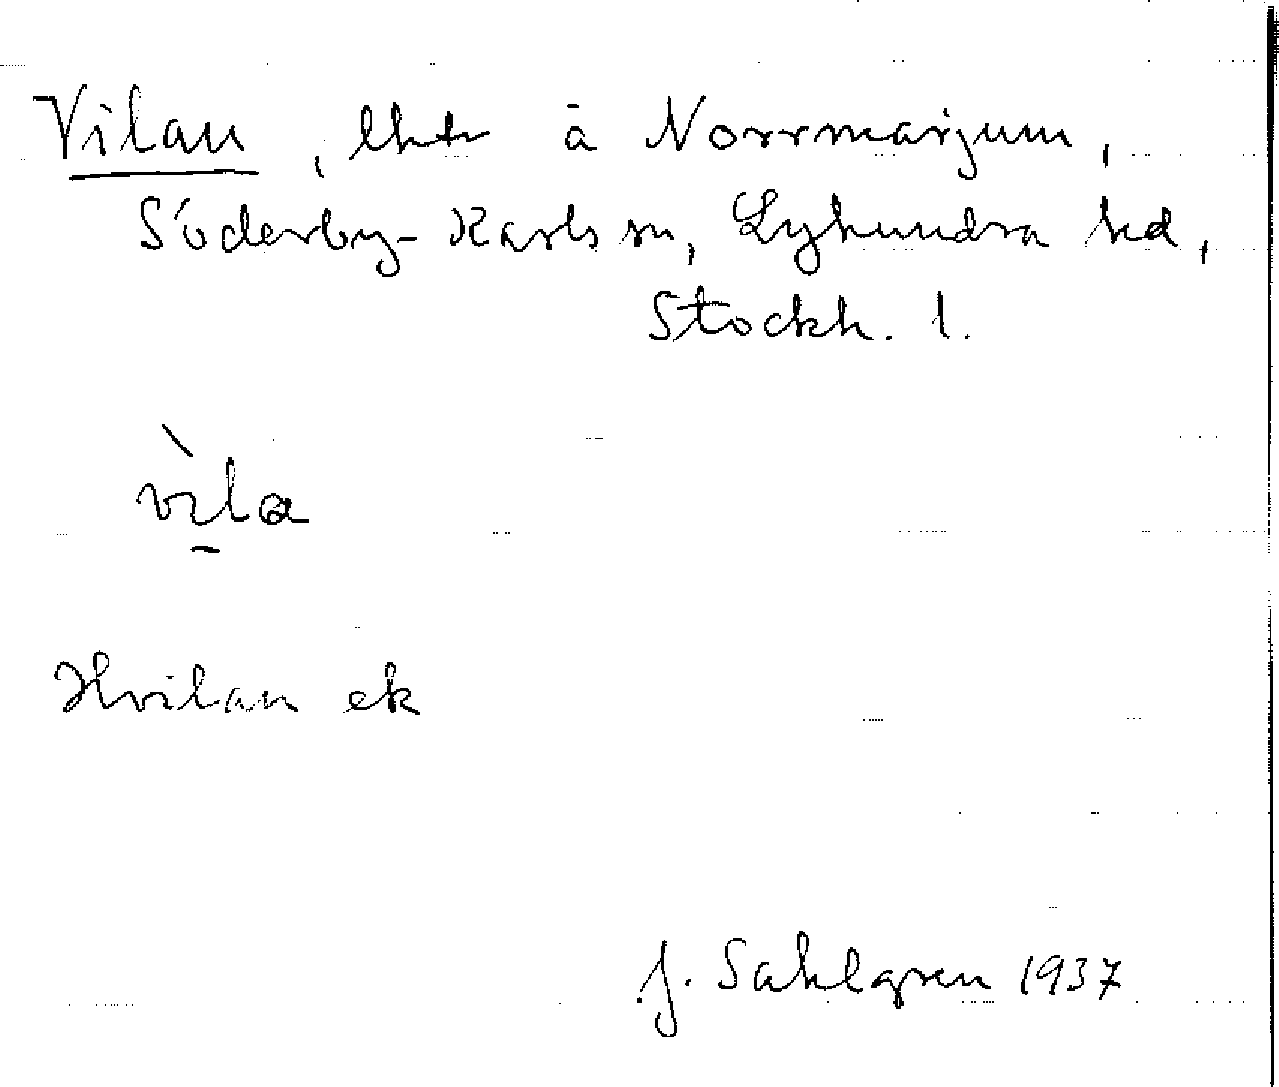 Vilan, lht å Norrmarjum,
Söderby-Karls sn, Lyhundra hd,
Stockh. l.
vila
Hvilan ek
J. Sahlgren 1937